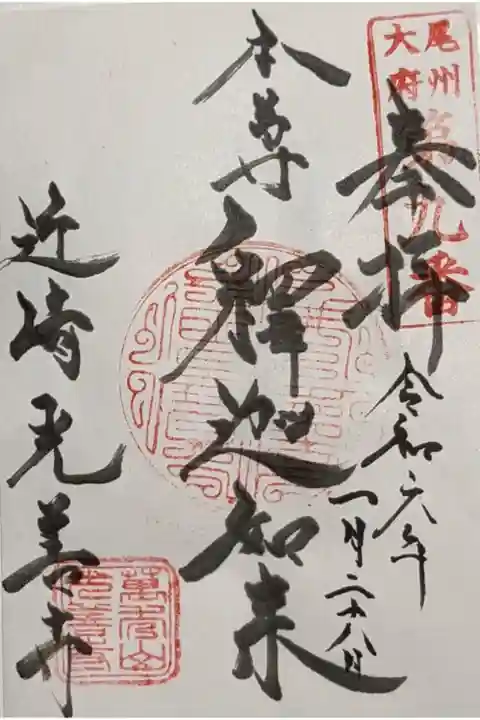 尾州
大府
第九番
奉拝
令和六年
一月二十八日
本尊
釋迦如来
近崎光善寺